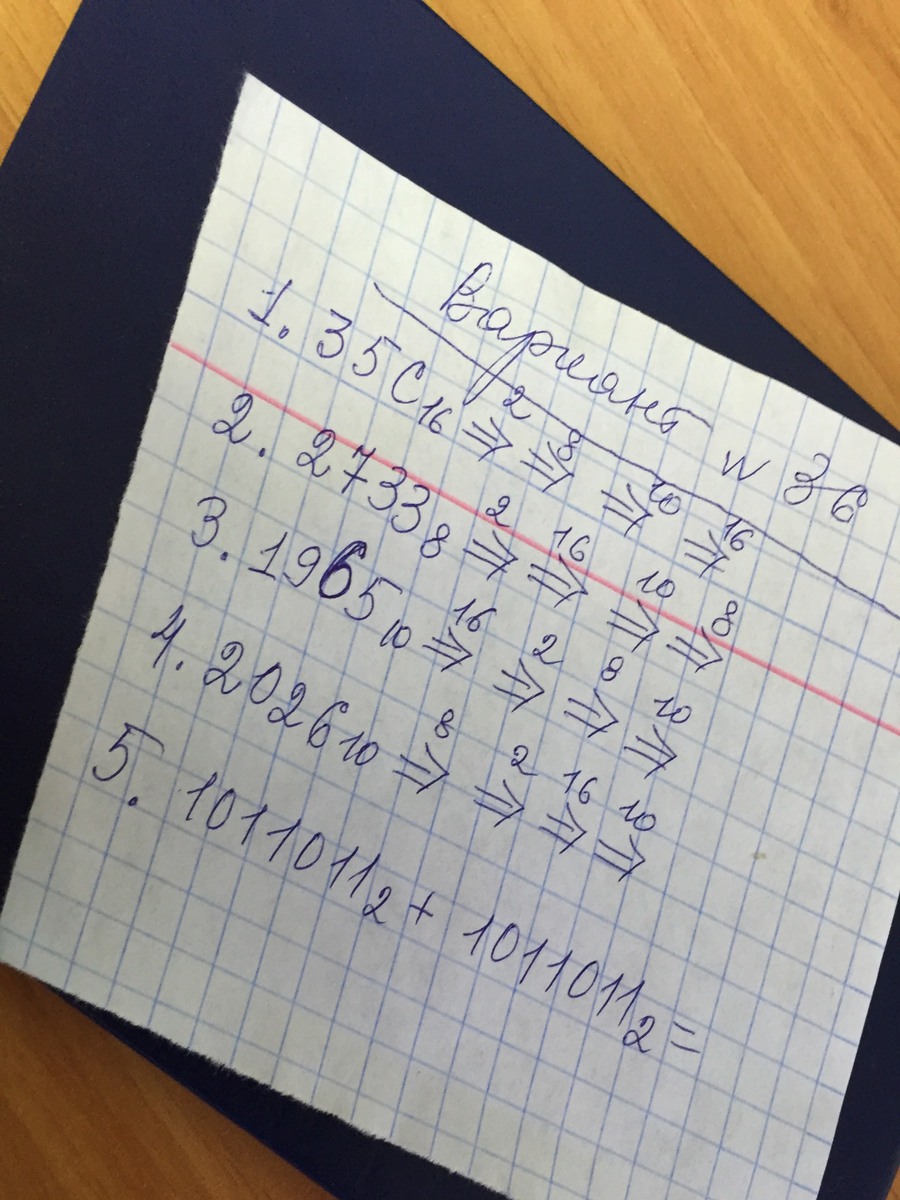 Вариант N 36
1. 35C₁₆ ⇒² ⇒⁸ ⇒¹⁰ ⇒¹⁶
2. 2733₈ ⇒² ⇒¹⁶ ⇒¹⁰ ⇒⁸
3. 1965₁₀ ⇒¹⁶ ⇒² ⇒⁸ ⇒¹⁰
4. 2026₁₀ ⇒⁸ ⇒² ⇒¹⁶ ⇒¹⁰
5. 1011011₂ + 1011011₂ =